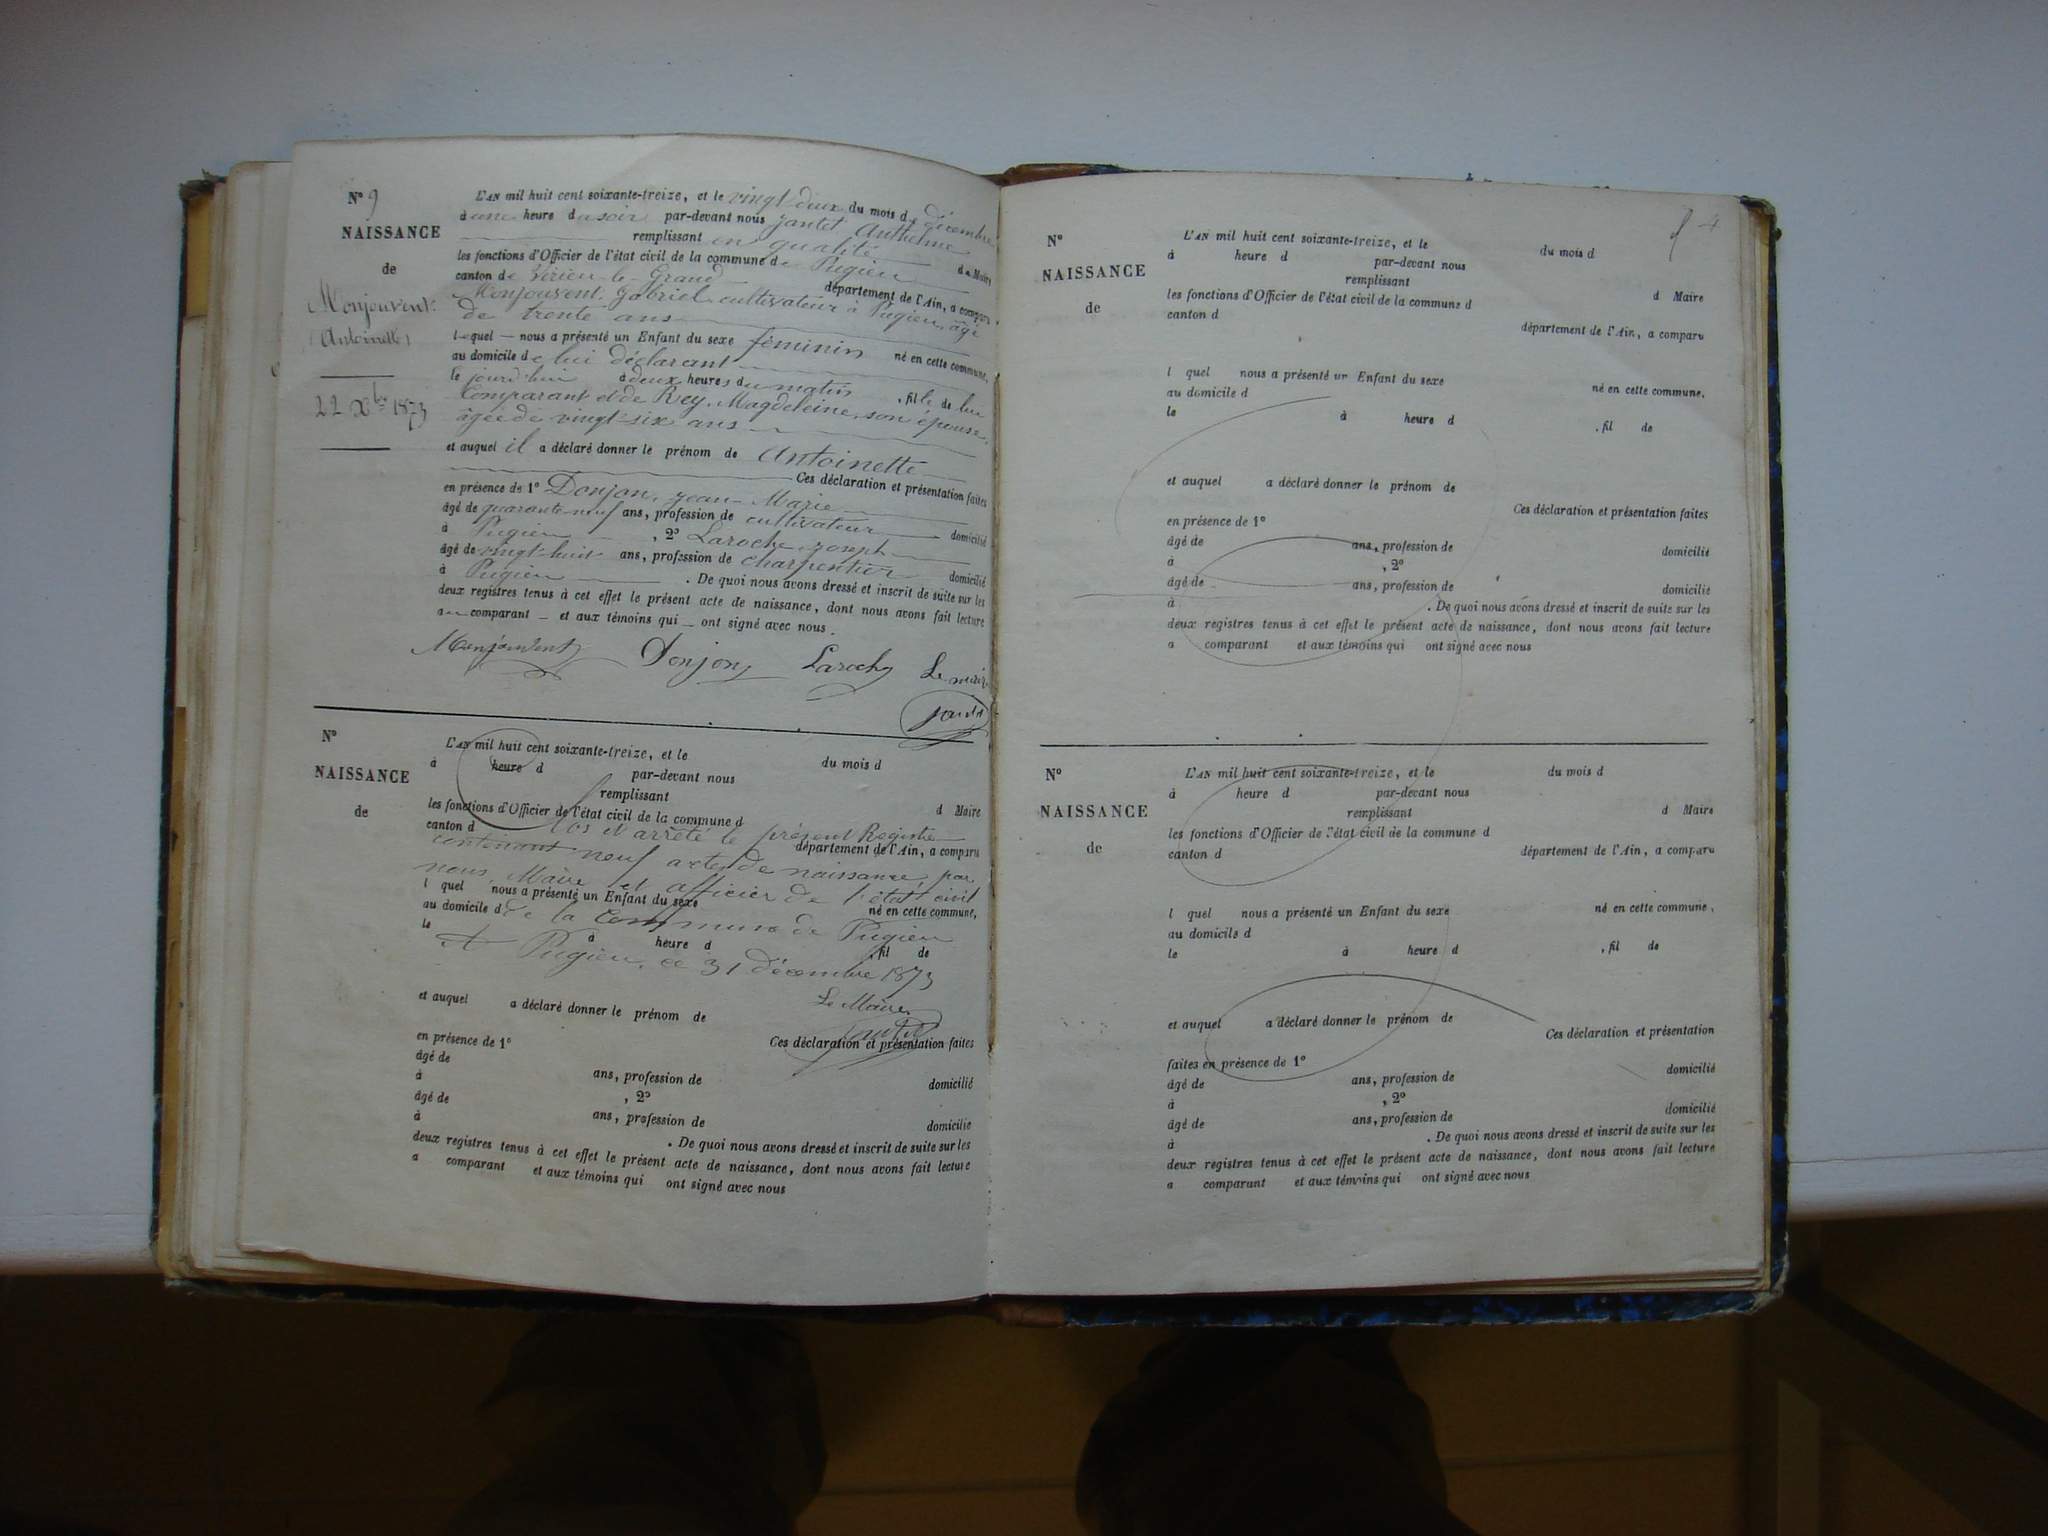 N° 9
NAISSANCE
de
Monjouvent
(Antoinette)
22 Xbre 1873
L'AN mil huit cent soixante-treize, et le vingt deux du mois de décembre
à une heure du soir par-devant nous Jantet Anthelme
remplissant en qualité
les fonctions d'Officier de l'état civil de la commune de Pugieu de Maire
canton de Virieu-le-Grand département de l'Ain, a comparu
Monjouvent Gabriel cultivateur à Pugieu, âgé
de trente ans
lequel nous a présenté un Enfant du sexe féminin né en cette commune,
au domicile de lui déclarant
le jourd'hui à deux heures du matin, fille de lui
Comparant et de Rey, Magdeleine, son épouse,
âgée de vingt-six ans
et auquel il a déclaré donner le prénom de Antoinette
Ces déclaration et présentation faites
en présence de 1° Donjon, Jean-Marie
âgé de quarante-neuf ans, profession de cultivateur domicilié
à Pugieu, 2° Laroche Joseph
âgé de vingt-huit ans, profession de charpentier domicilié
à Pugieu. De quoi nous avons dressé et inscrit de suite sur les
deux registres tenus à cet effet le présent acte de naissance, dont nous avons fait lecture
au comparant et aux témoins qui ont signé avec nous.
Monjouvent Donjon Laroche Le maire
Jantet
N°
NAISSANCE
de
L'AN mil huit cent soixante-treize, et le du mois d
à heure d par-devant nous
remplissant
les fonctions d'Officier de l'état civil de la commune d d Maire
Clos et arrêté le présent Registre
canton d département de l'Ain, a comparu
contenant neuf actes de naissance par
nous, Maire et officier de l'état civil
l quel nous a présenté un Enfant du sexe né en cette commune,
au domicile d
de la Commune de Pugieu
le à heure d , fil de
A Pugieu, ce 31 décembre 1873
Le Maire
et auquel a déclaré donner le prénom de
Jantet
Ces déclaration et présentation faites
en présence de 1°
âgé de ans, profession de domicilié
à , 2°
âgé de ans, profession de domicilié
à . De quoi nous avons dressé et inscrit de suite sur les
deux registres tenus à cet effet le présent acte de naissance, dont nous avons fait lecture
a comparant et aux témoins qui ont signé avec nous
N°
NAISSANCE
de
L'AN mil huit cent soixante-treize, et le du mois d
à heure d par-devant nous
remplissant
les fonctions d'Officier de l'état civil de la commune d d Maire
canton d
département de l'Ain, a comparu
l quel nous a présenté un Enfant du sexe né en cette commune,
au domicile d
le à heure d , fil de
et auquel a déclaré donner le prénom de
Ces déclaration et présentation faites
en présence de 1°
âgé de ans, profession de domicilié
à , 2°
âgé de ans, profession de domicilié
à . De quoi nous avons dressé et inscrit de suite sur les
deux registres tenus à cet effet le présent acte de naissance, dont nous avons fait lecture
a comparant et aux témoins qui ont signé avec nous
N°
NAISSANCE
de
L'AN mil huit cent soixante-treize, et le du mois d
à heure d par-devant nous
remplissant
les fonctions d'Officier de l'état civil de la commune d d Maire
canton d département de l'Ain, a comparu
l quel nous a présenté un Enfant du sexe né en cette commune,
au domicile d
le à heure d , fil de
et auquel a déclaré donner le prénom de
Ces déclaration et présentation
faites en présence de 1°
âgé de ans, profession de domicilié
à , 2°
âgé de ans, profession de domicilié
à . De quoi nous avons dressé et inscrit de suite sur les
deux registres tenus à cet effet le présent acte de naissance, dont nous avons fait lecture
a comparant et aux témoins qui ont signé avec nous